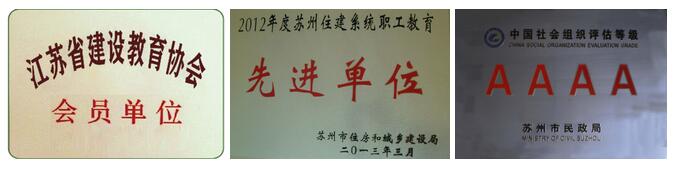 江苏省建设教育协会
会员单位
2012年度苏州住建系统职工教育
先进单位
苏州市住房和城乡建设局
二〇一三年三月
中国社会组织评估等级
CHINA SOCIAL ORGANIZATION EVALUATION GRADE
AAAA
苏州市民政局
MINISTRY OF CIVIL SUZHOU